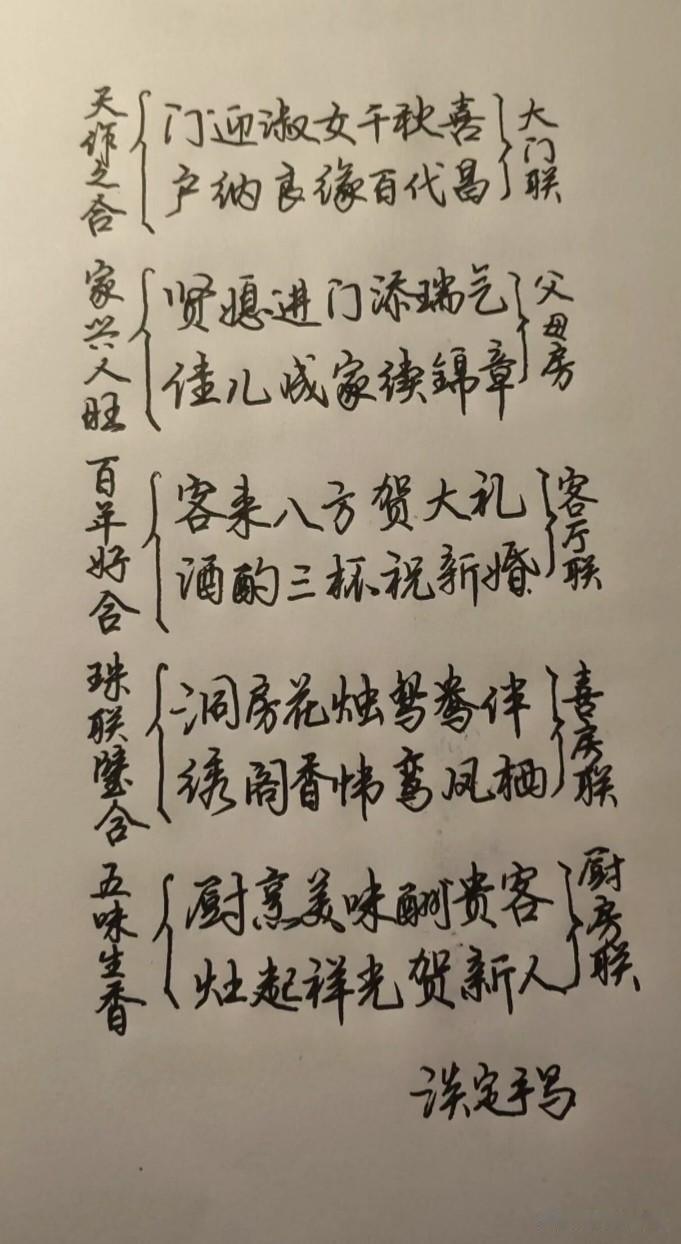 天作之合
门迎淑女千秋喜
户纳良缘百代昌
大门联
家兴人旺
贤媳进门添瑞气
佳儿成家续锦章
父母房
百年好合
客来八方贺大礼
酒酌三杯祝新婚
客厅联
珠联璧合
洞房花烛鸳鸯伴
绣阁香帏鸾凤栖
喜房联
五味生香
厨烹美味酬贵客
灶起祥光贺新人
厨房联
谈定手写